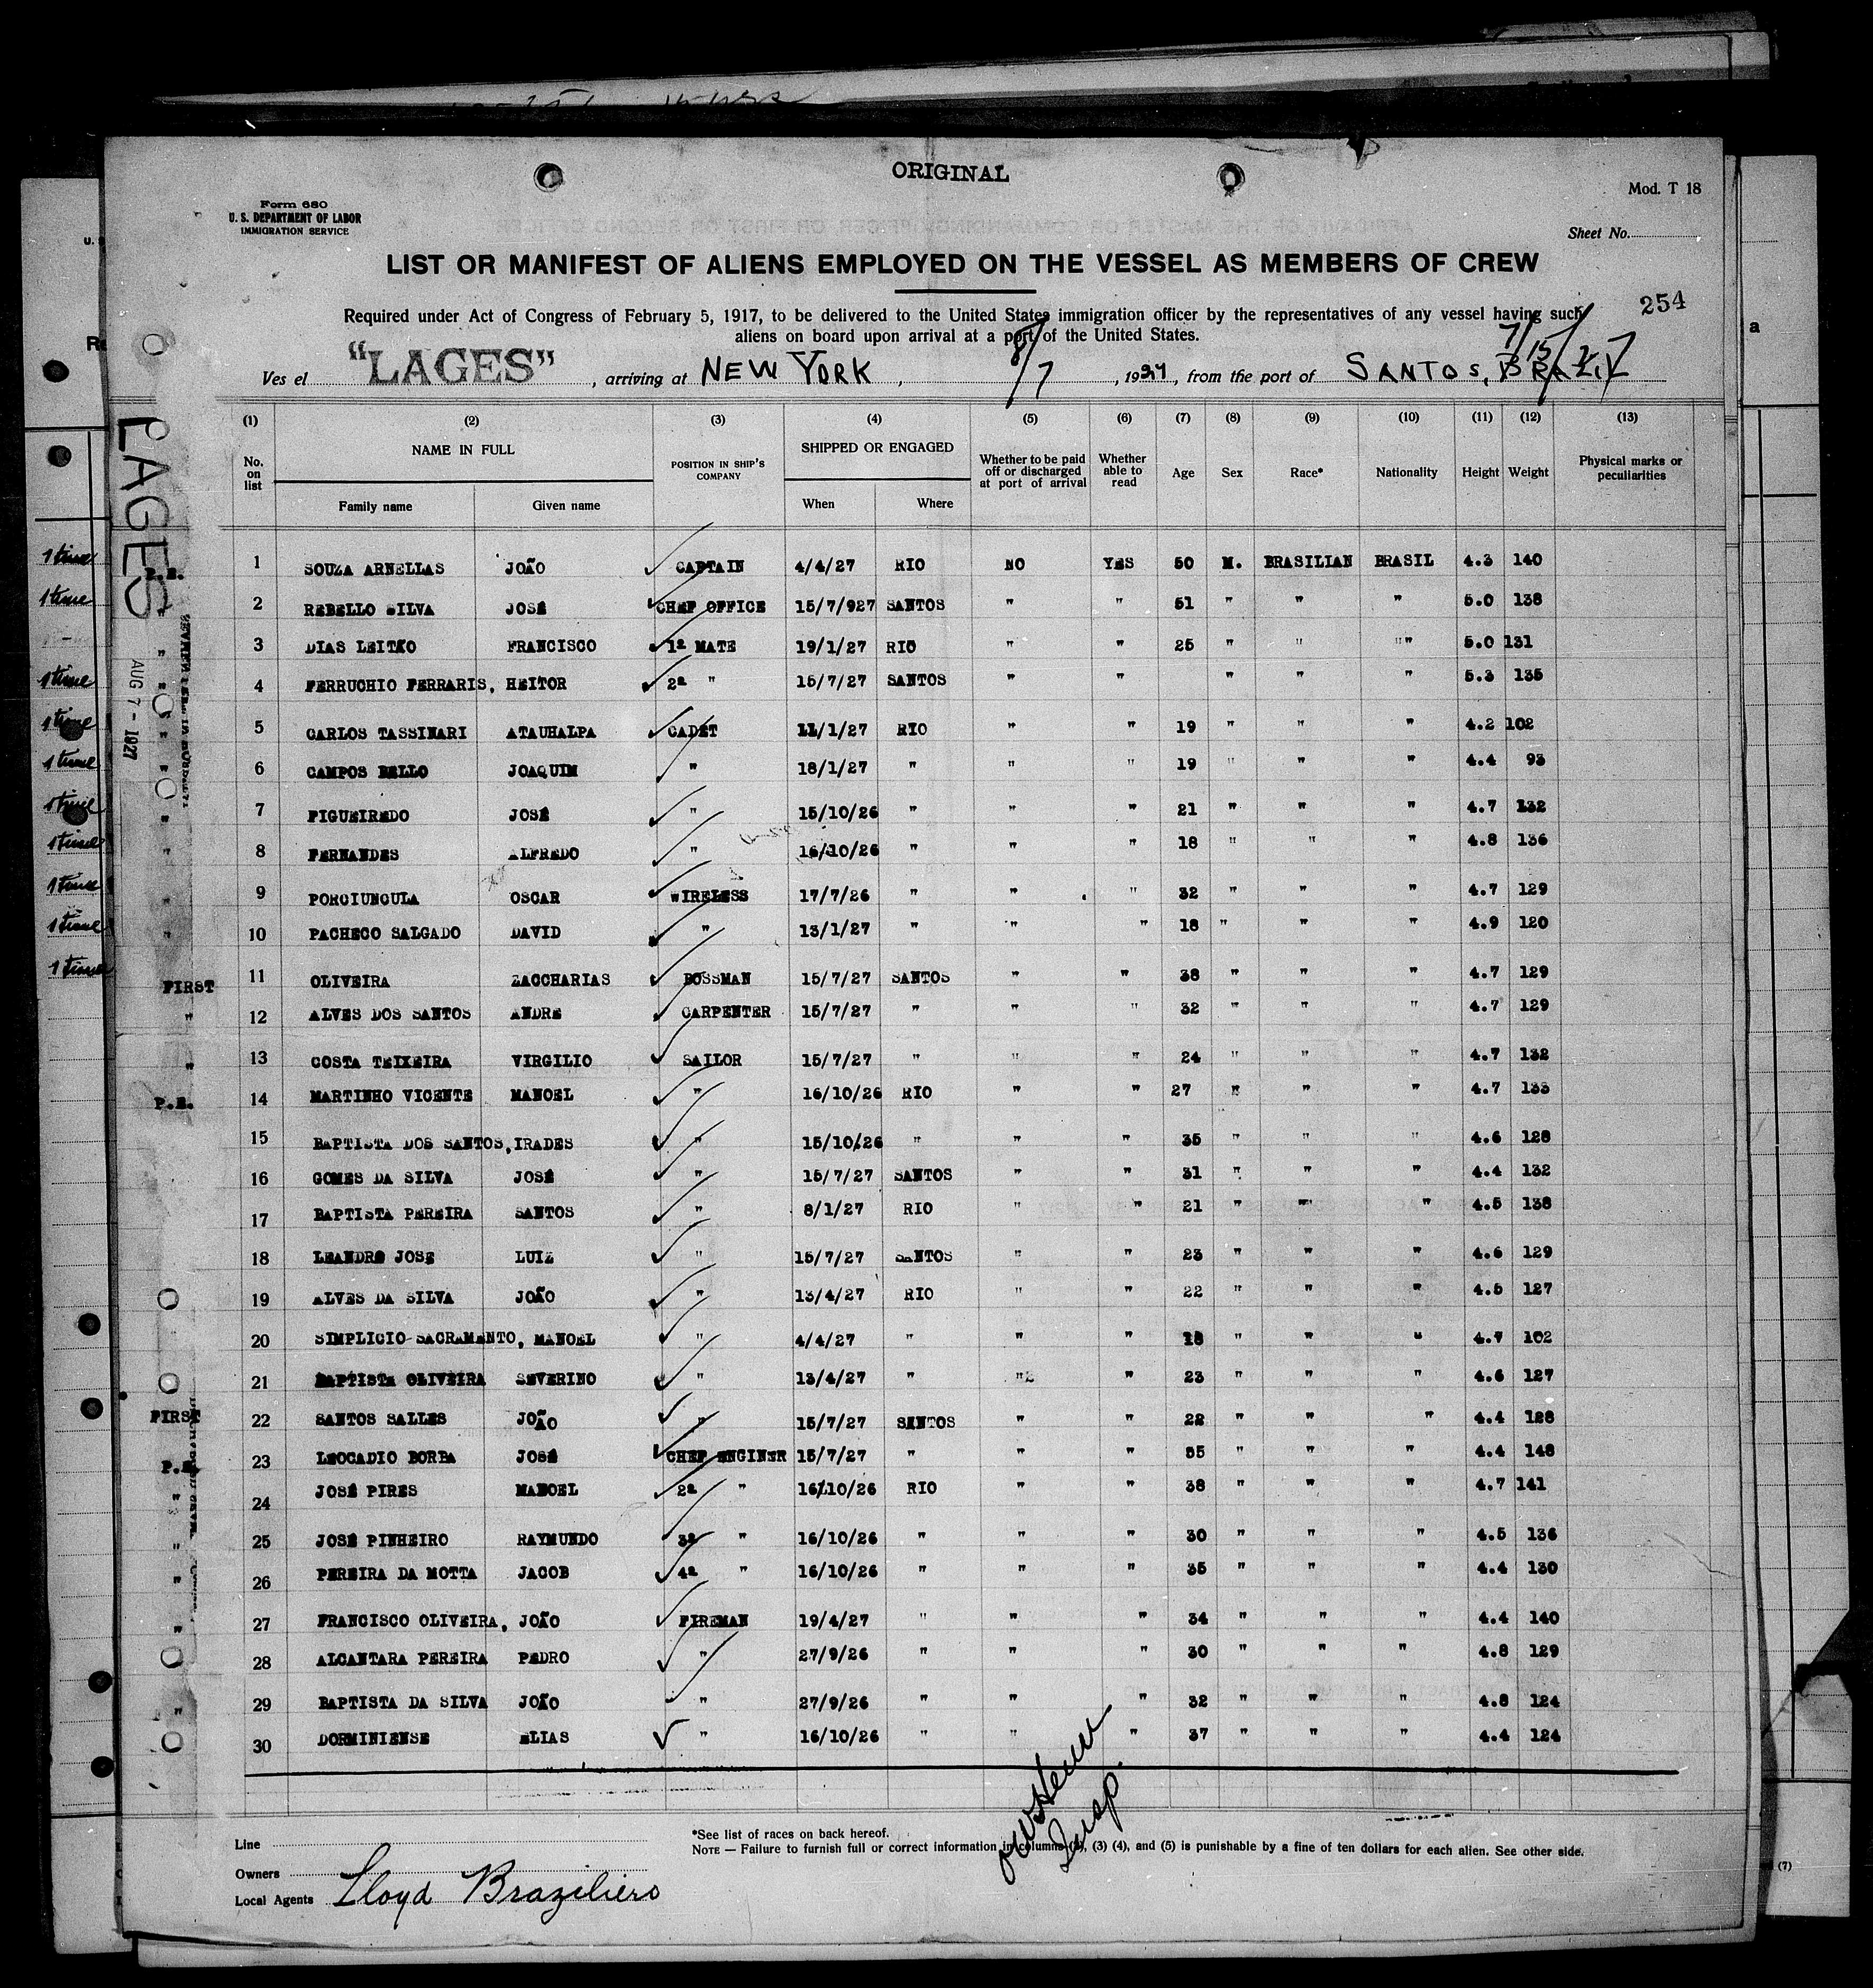 ORIGINAL
Mod. T 18
Form 680
U. S. DEPARTMENT OF LABOR
IMMIGRATION SERVICE
Sheet No.
LIST OR MANIFEST OF ALIENS EMPLOYED ON THE VESSEL AS MEMBERS OF CREW
254
Required under Act of Congress of February 5, 1917, to be delivered to the United States immigration officer by the representatives of any vessel having such
aliens on board upon arrival at a port of the United States.
7/15/27
Ves el "LAGES", arriving at NEW YORK, 8/7, 1927, from the port of SANTOS, BRAZIL
LAGES
AUG 7 - 1927
(1) (2) (3) (4) (5) (6) (7) (8) (9) (10) (11) (12) (13)
No. on list NAME IN FULL POSITION IN SHIP'S COMPANY SHIPPED OR ENGAGED Whether to be paid off or discharged at port of arrival Whether able to read Age Sex Race* Nationality Height Weight Physical marks or peculiarities
Family name Given name When Where
1 time P.E. 1 SOUZA ARNELLAS JOÃO CAPTAIN 4/4/27 RIO NO YES 50 M. BRASILIAN BRASIL 4.3 140
1 time " 2 REBELLO SILVA JOSÉ CHEF OFFICE 15/7/927 SANTOS " " 51 " " " 5.0 138
- " 3 DIAS LEITÃO FRANCISCO 1ª MATE 19/1/27 RIO " " 25 " " " 5.0 131
1 time " 4 FERRUCHIO FERRARIS, HEITOR 2ª " 15/7/27 SANTOS " " " " " 5.3 135
1 time " 5 CARLOS TASSINARI ATAUHALPA CADET 11/1/27 RIO " " 19 " " " 4.2 102
1 time " 6 CAMPOS BELLO JOAQUIM " 18/1/27 " " " 19 " " " 4.4 93
1 time " 7 FIGUEIREDO JOSÉ " 15/10/26 " " " 21 " " " 4.7 132
1 time " 8 FERNANDES ALFREDO " 16/10/26 " " " 18 " " " 4.8 136
1 time " 9 PORCIUNCULA OSCAR WIRELESS 17/7/26 " " " 32 " " " 4.7 129
1 time " 10 PACHECO SALGADO DAVID " 13/1/27 " " " 18 " " " 4.9 120
1 time FIRST 11 OLIVEIRA ZACCHARIAS BOSSMAN 15/7/27 SANTOS " " 38 " " " 4.7 129
" 12 ALVES DOS SANTOS ANDRE CARPENTER 15/7/27 " " " 32 " " " 4.7 129
" 13 COSTA TEIXEIRA VIRGILIO SAILOR 15/7/27 " " " 24 " " " 4.7 132
P.E. 14 MARTINHO VICENTE MANOEL " 16/10/26 RIO " " 27 " " " 4.7 133
15 BAPTISTA DOS SANTOS, IRADES " 15/10/26 " " " 35 " " " 4.6 128
16 GOMES DA SILVA JOSÉ " 15/7/27 SANTOS " " 31 " " " 4.4 132
17 BAPTISTA PEREIRA SANTOS " 8/1/27 RIO " " 21 " " " 4.5 138
18 LEANDRO JOSE LUIZ " 15/7/27 SANTOS " " 23 " " " 4.6 129
19 ALVES DA SILVA JOÃO " 13/4/27 RIO " " 22 " " " 4.5 127
20 SIMPLICIO SACRAMENTO, MANOEL " 4/4/27 " " " 18 " " " 4.7 102
21 BAPTISTA OLIVEIRA SEVERINO " 13/4/27 " " " 23 " " " 4.6 127
FIRST 22 SANTOS SALLES JOÃO " 15/7/27 SANTOS " " 22 " " " 4.4 128
P.E. 23 LEOCADIO BORBA JOSÉ CHEF ENGINER 15/7/27 " " " 55 " " " 4.4 148
" 24 JOSÉ PIRES MANOEL 2ª " 16/10/26 RIO " " 38 " " " 4.7 141
" 25 JOSÉ PINHEIRO RAYMUNDO 3ª " 16/10/26 " " " 30 " " " 4.5 136
" 26 PEREIRA DA MOTTA JACOB 4ª " 16/10/26 " " " 35 " " " 4.4 130
" 27 FRANCISCO OLIVEIRA, JOÃO FIREMAN 19/4/27 " " " 34 " " " 4.4 140
28 ALCANTARA PEREIRA PEDRO " 27/9/26 " " " 30 " " " 4.8 129
" 29 BAPTISTA DA SILVA JOÃO " 27/9/26 " " " 32 " " " 4.8 124
30 DORMINIENSE ELIAS " 16/10/26 " " " 37 " " " 4.4 124
Insp.
Line
*See list of races on back hereof.
NOTE — Failure to furnish full or correct information in columns (2), (3) (4), and (5) is punishable by a fine of ten dollars for each alien. See other side.
Owners
Local Agents Lloyd Braziliero
(7)